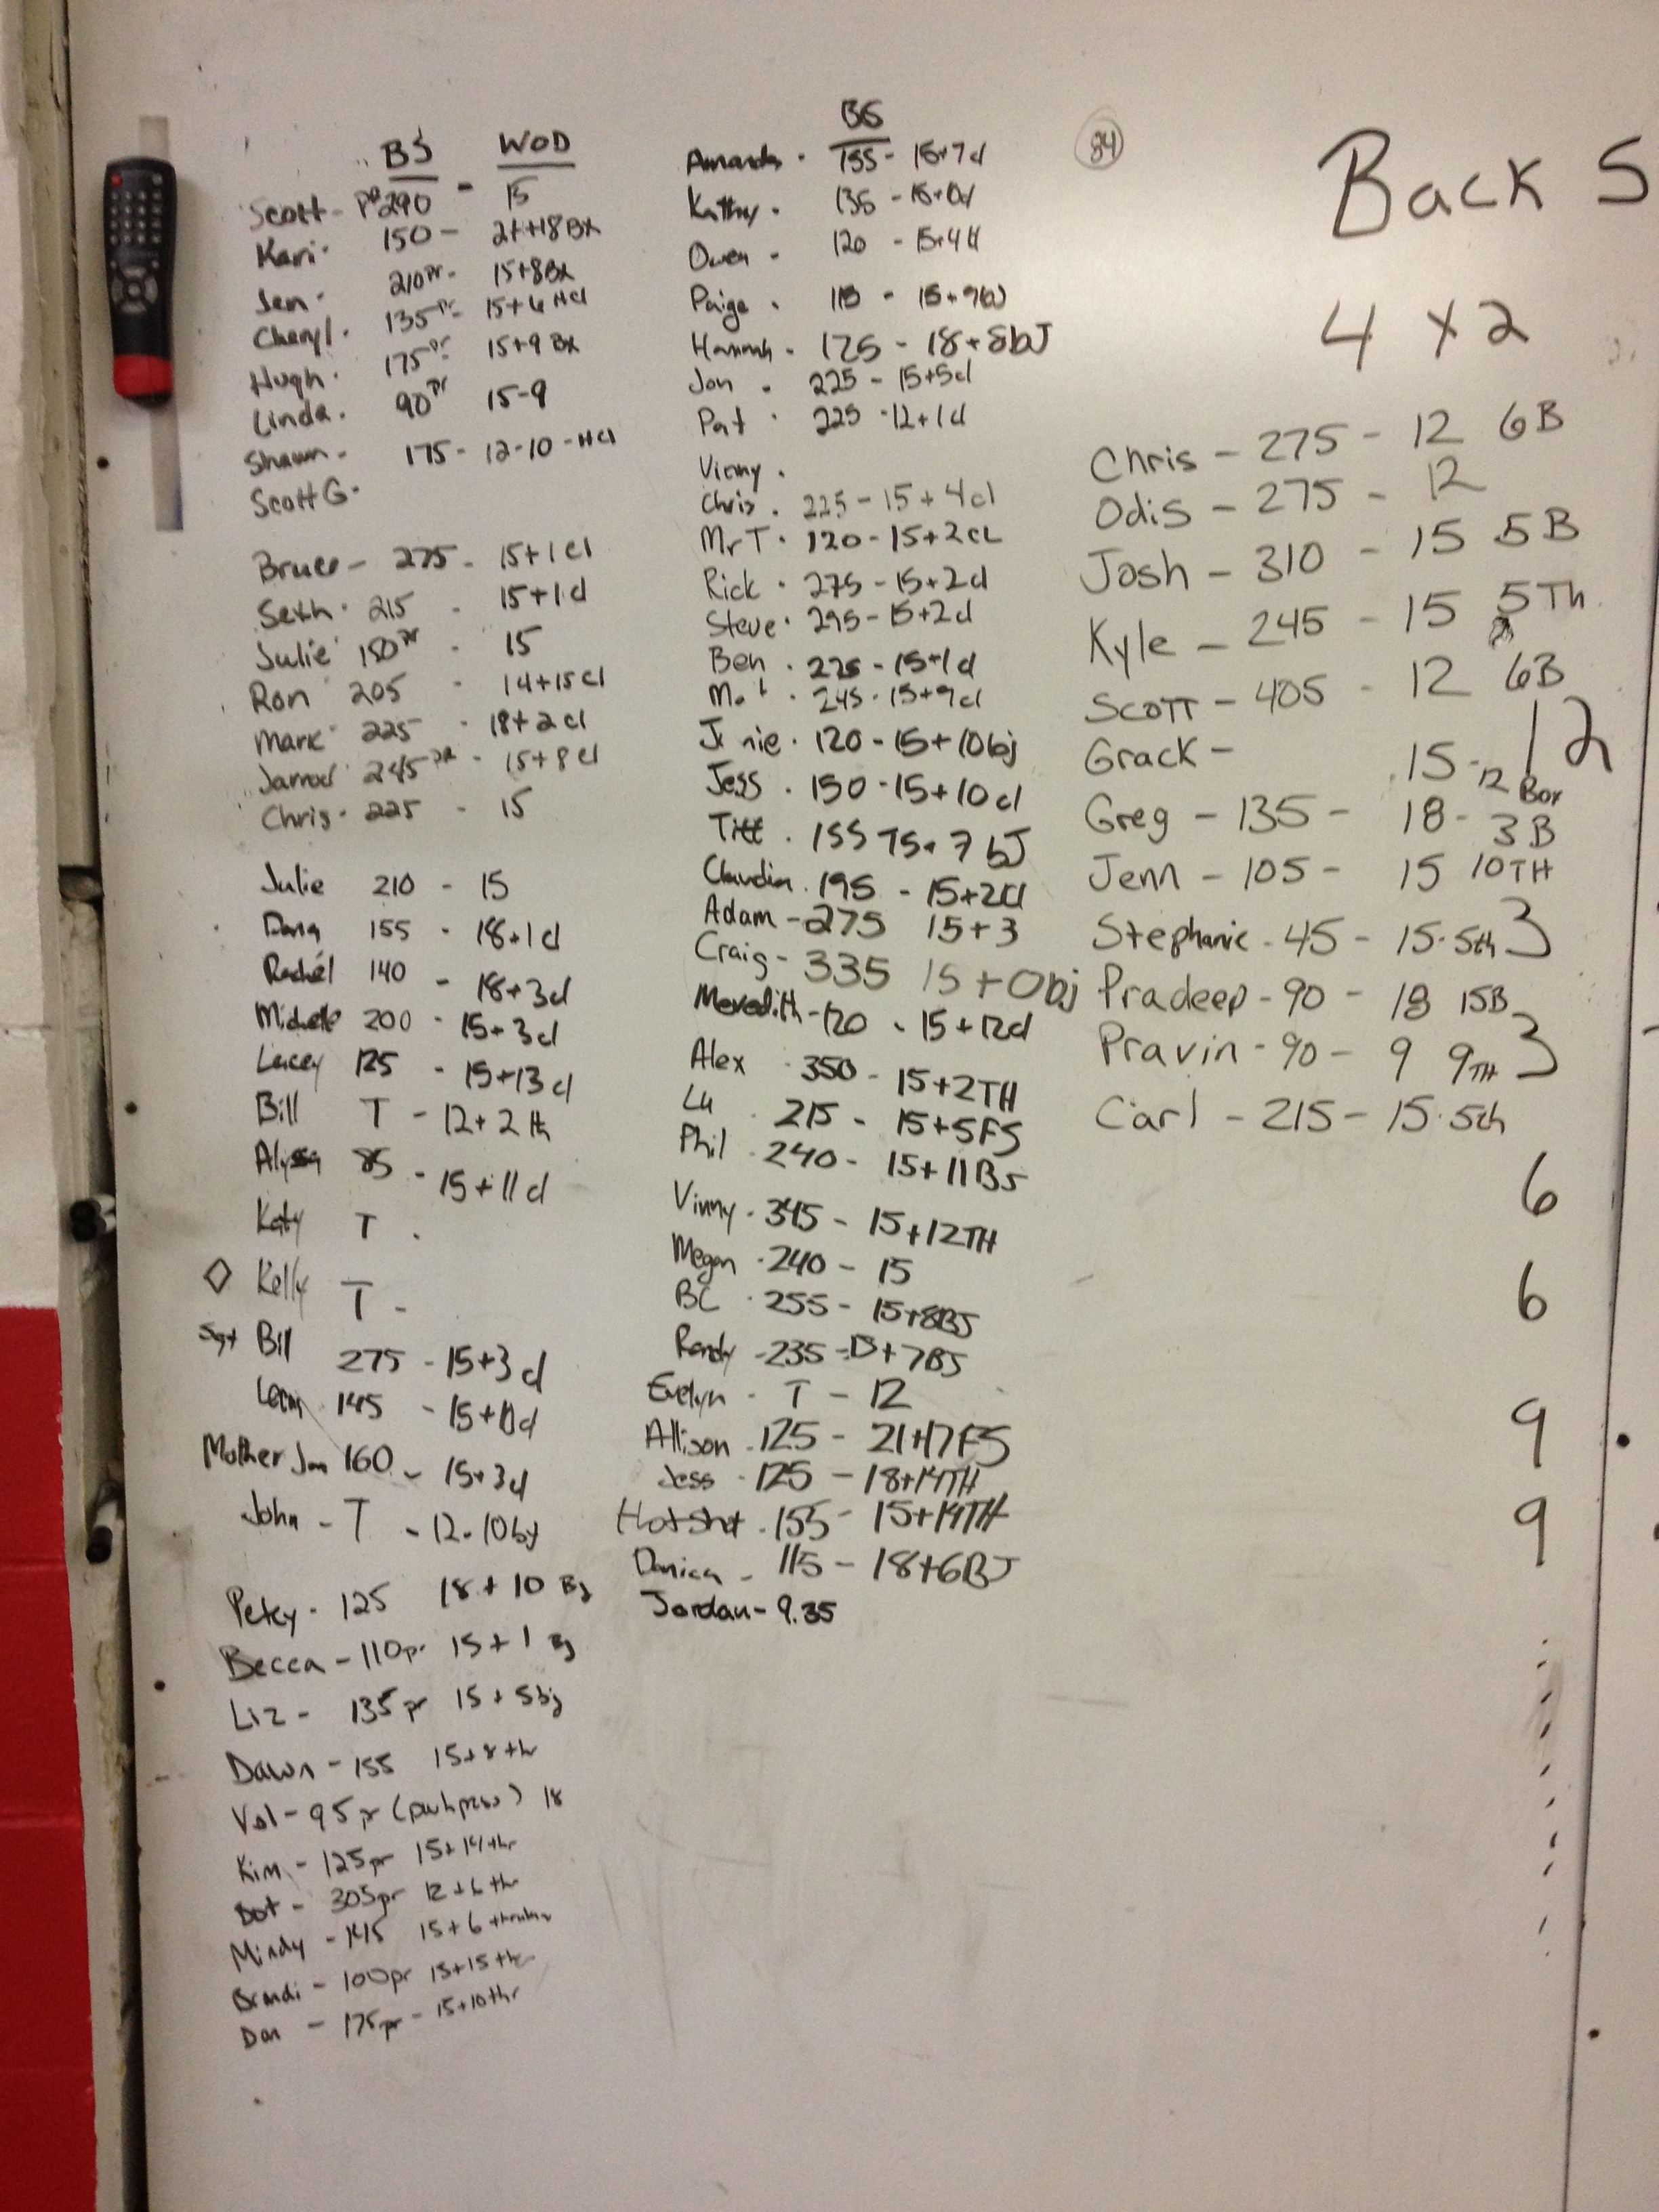 BS WOD
Scott - PR 290 - 15
Kari - 150 - 21+18BX
Jen - 210 pr - 15+8BX
Cheryl - 135 pr - 15+6 HCl
Hugh - 175 pr - 15+9 BX
Linda - 90 pr 15-9
Shawn - 175 - 12-10-HCl
Scott G -
Bruce - 275 - 15+1cl
Seth - 215 - 15+1cl
Julie 150 pr - 15
Ron 205 - 14+15cl
Mark 225 - 18+2cl
Jarrod 245 PR - 15+8cl
Chris - 225 - 15
Julie 210 - 15
Dana 155 - 18+1cl
Rachel 140 - 18+3cl
Michele 200 - 15+3cl
Lacey 125 - 15+13cl
Bill T - 12+2th
Alyssa 85 - 15+11cl
Katy T -
Kelly T -
Sgt Bill 275 - 15+3cl
145 - 15+10cl
Mother Jan 160 - 15+3cl
John - T - 12-10bj
Petey - 125 18+10 Bj
Becca - 110pr 15+1 Bj
Liz - 135pr 15+5bj
Dawn - 155 15+8 thr
Val - 95pr (push press) 18
Kim - 125pr 15+14thr
Dot - 305pr 12+6 thr
Mindy - 145 15+6 thruster
Brandi - 100pr 15+15 thr
Dan - 175pr - 15+10thr
BS
Amanda - 155 - 15+7cl
Kathy - 135 - 15+0cl
Owen - 120 - 15+4
Paige - 115 - 15+9bJ
Hannah - 125 - 18+8bJ
Jon - 225 - 15+5cl
Pat - 225 - 12+1cl
Vinny -
Chris - 225 - 15+4cl
Mr T - 120 - 15+2cL
Rick - 275 - 15+2cl
Steve - 295 - 15+2cl
Ben - 225 - 15+1cl
245 - 15+9cl
120 - 15+10bj
Jess - 150 - 15+10cl
155 15+7 bJ
Claudia - 195 - 15+2cl
Adam - 275 15+3
Craig - 335 15+0bj
Meredith - 120 - 15+12cl
Alex - 350 - 15+2TH
Lu - 215 - 15+5FS
Phil - 240 - 15+11BJ
Vinny - 345 - 15+12TH
Megan - 240 - 15
BC - 255 - 15+8BJ
Randy - 235 - 15+7BJ
Evelyn - T - 12
Allison - 125 - 21+17FS
Jess - 125 - 18+14TH
Hotshot - 155 - 15+14TH
Danica - 115 - 18+6BJ
Jordan - 9.35
84
Back S
4 x 2
Chris - 275 - 12 6B
Odis - 275 - 12
Josh - 310 - 15 5B
Kyle - 245 - 15 5Th
Scott - 405 - 12 6B
Grack - 15-12 Box
Greg - 135 - 18 - 3B
Jenn - 105 - 15 10TH
Stephanie - 45 - 15-5th
Pradeep - 90 - 18 15B
Pravin - 90 - 9 9TH
Carl - 215 - 15-5th
12
3
3
6
6
9
9